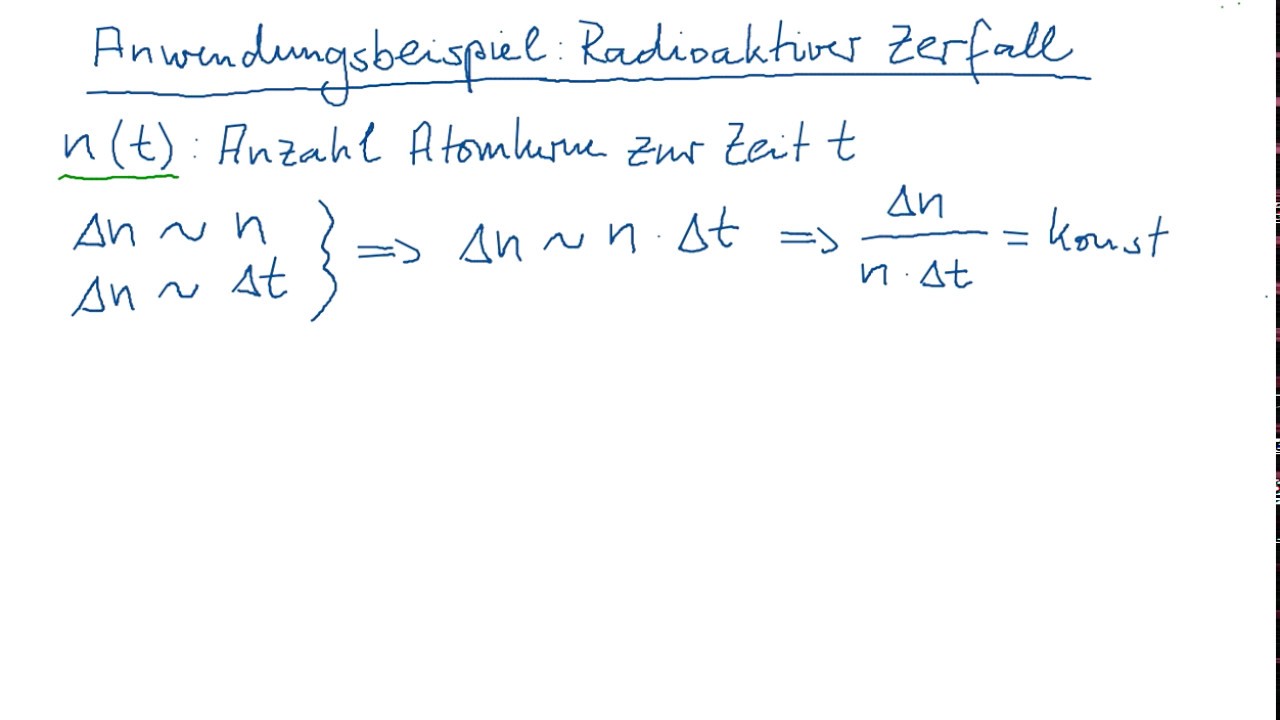 Anwendungsbeispiel: Radioaktiver Zerfall
n(t): Anzahl Atomkerne zur Zeit t
Δn ~ n
Δn ~ Δt } => Δn ~ n · Δt => Δn / (n · Δt) = konst